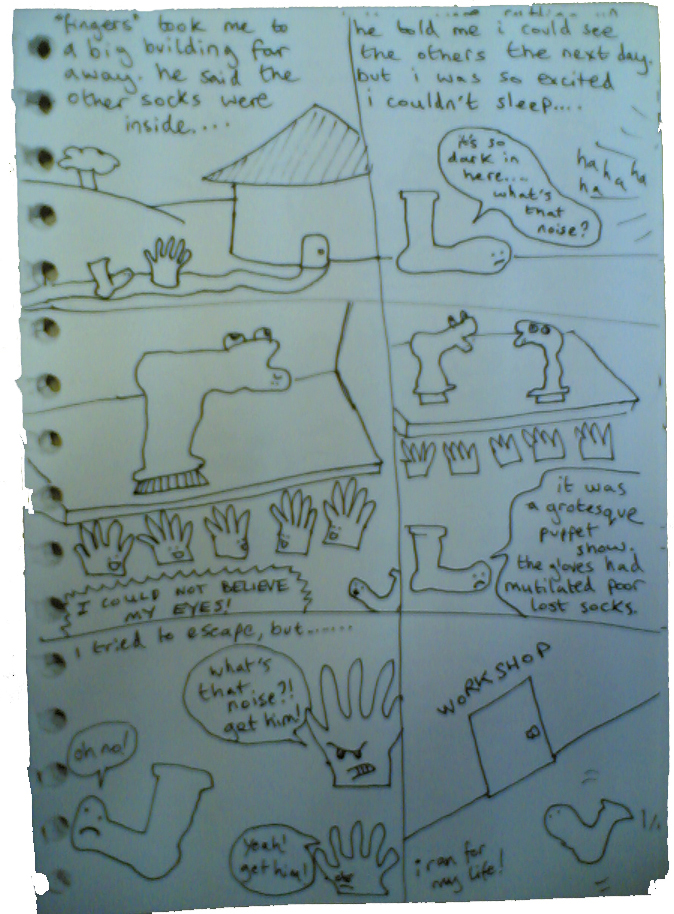 "fingers" took me to
a big building far
away. he said the
other socks were
inside....
he told me i could see
the others the next day.
but i was so excited
i couldn't sleep....
it's so
dark in
here....
what's
that
noise?
ha
ha
ha
ha
I COULD NOT BELIEVE
MY EYES!
it was
a grotesque
puppet
show.
the gloves had
mutilated poor
lost socks.
i tried to escape, but......
what's
that
noise?!
get him!
oh no!
yeah!
get him!
WORKSHOP
i ran for
my life!